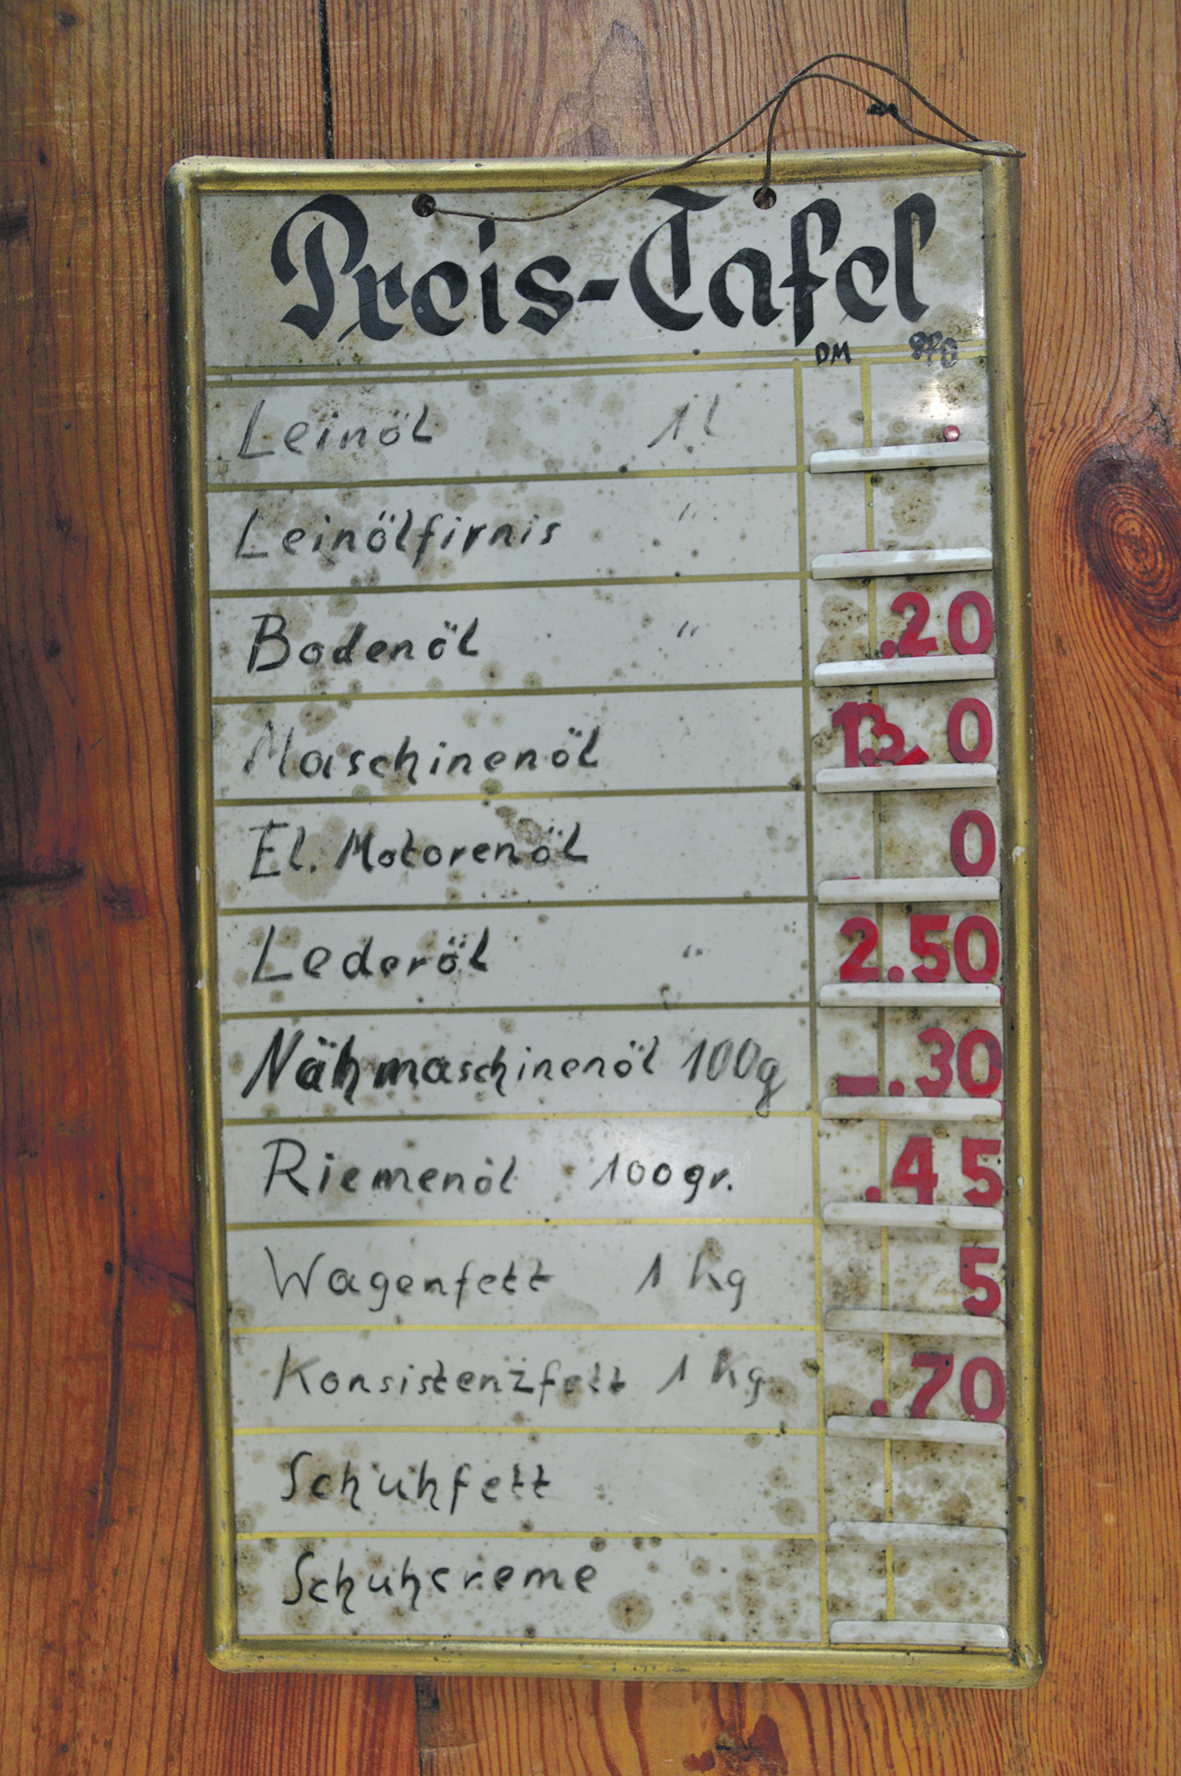 Preis-Tafel
DM Pfg
Leinöl 1 l
Leinölfirnis "
Bodenöl " .20
Maschinenöl 0
El. Motorenöl 0
Lederöl " 2.50
Nähmaschinenöl 100g –.30
Riemenöl 100gr. .45
Wagenfett 1 kg 5
Konsistenzfett 1 kg .70
Schuhfett
Schuhcreme